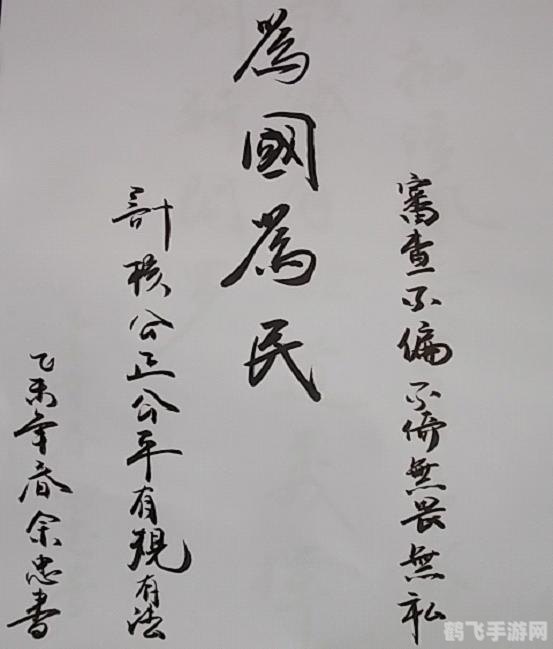 審查不偏不倚無畏無私
為國為民
計核公正公平有規有法
乙未年春余忠書
鹤飞手游网